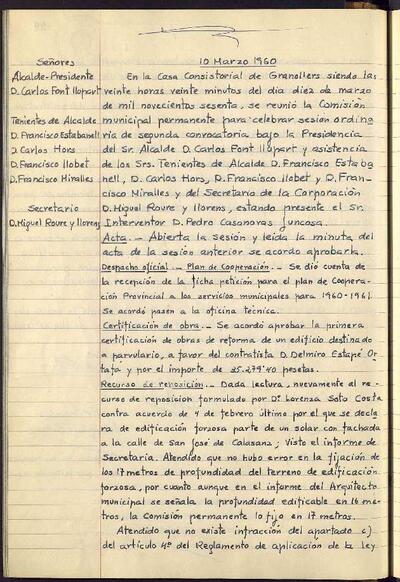 Señores
Alcalde-Presidente
D. Carlos Font Llopart
Tenientes de Alcalde
D. Francisco Estabanell
D. Carlos Hors
D. Francisco Llobet
D. Francisco Miralles
Secretario
D. Miguel Roure y Llorens
10 Marzo 1960
En la Casa Consistorial de Granollers siendo las
veinte horas veinte minutos del dia diez de marzo
de mil novecientos sesenta, se reunió la Comisión
municipal permanente para celebrar sesión ordina
ria de segunda convocatoria bajo la Presidencia
del Sr. Alcalde D. Carlos Font Llopart y asistencia
de los Srs. Tenientes de Alcalde D. Francisco Estaba
nell, D. Carlos Hors, D. Francisco Llobet y D. Fran-
cisco Miralles y del Secretario de la Corporación
D. Miguel Roure y Llorens, estando presente el Sr.
Interventor D. Pedro Casanovas Juncosa.
Acta.- Abierta la sesión y leida la minuta del
acta de la sesión anterior se acordo aprobarla.
Despacho oficial.- Plan de Cooperación.- Se dió cuenta de
la recepción de la ficha petición para el plan de Coopera-
ción Provincial a los servicios municipales para 1960-1961.
Se acordó pasen a la oficina tecnica.
Certificación de obra.- Se acordó aprobar la primera
certificación de obras de reforma de un edificio destinado
a parvulario, a favor del contratista D. Delmiro Estapé Or-
tafá y por el importe de 25.279'40 pesetas.
Recurso de reposición.- Dada lectura, nuevamente al re-
curso de reposicion formulado por Dª Lorenza Soto Costa
contra acuerdo de 4 de febrero último por el que se decla
ra de edificación forzosa parte de un solar con fachada
a la calle de San José de Calasanz; Visto el informe de
Secretaria. Atendido que no hubo error en la fijación de
los 17 metros de profundidad del terreno de edificación
forzosa, por cuanto aunque en el informe del Arquitecto
municipal se señala la profundidad edificable en 16 me-
tros, la Comisión permanente lo fijo en 17 metros.
Atendido que no existe infracción del apartado c)
del artículo 4º del Reglamento de aplicación de la ley